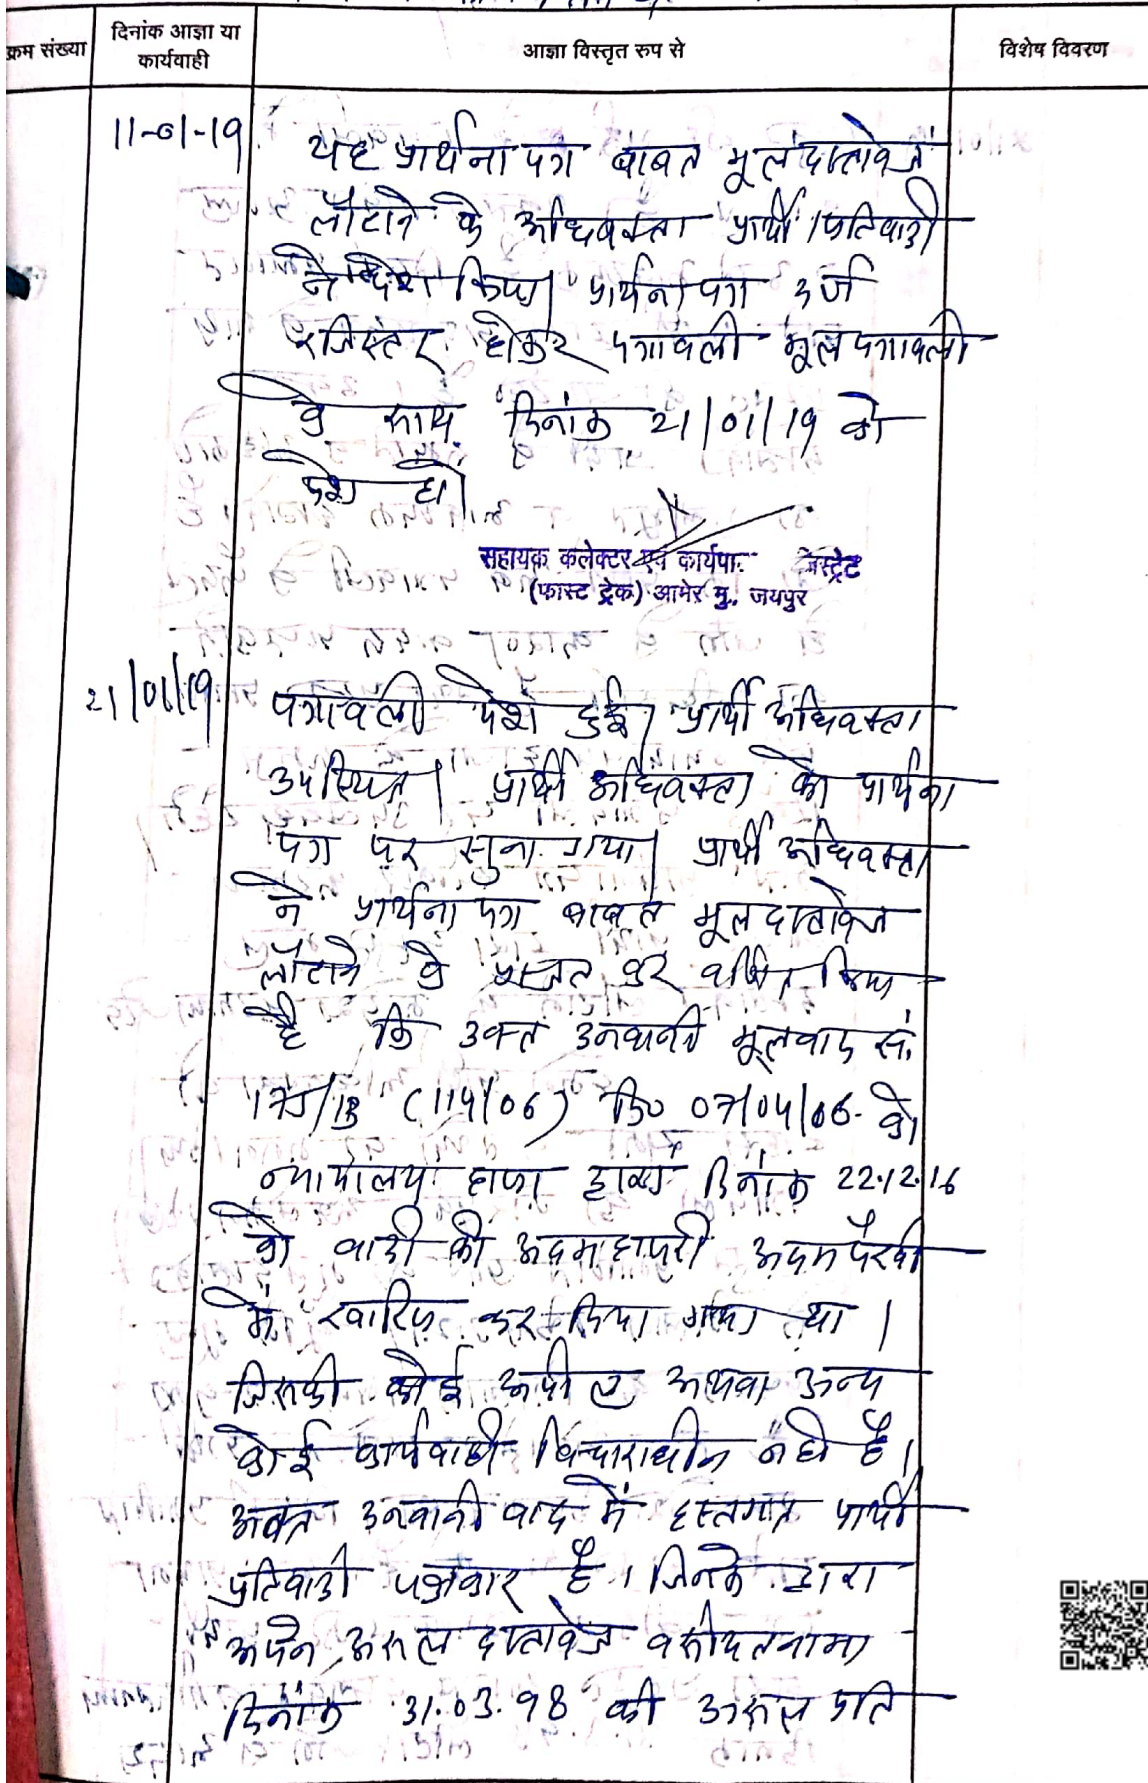 क्रम संख्या
दिनांक आज्ञा या
कार्यवाही
आज्ञा विस्तृत रुप से
विशेष विवरण
11-01-19
यह प्रार्थना पत्र बाबत मूल दस्तावेज
लौटाने के अधिवक्ता प्रार्थी / प्रतिवादी
ने पेश किया। प्रार्थना पत्र दर्ज
रजिस्टर होकर पत्रावली मूल पत्रावली
के साथ दिनांक 21/01/19 को
पेश हो।
सहायक कलेक्टर एवं कार्यपा. जिस्ट्रेट
(फास्ट ट्रेक) आमेर मु., जयपुर
21/01/19
पत्रावली पेश हुई। प्रार्थी अधिवक्ता
उपस्थित। प्रार्थी अधिवक्ता को प्रार्थना
पत्र पर सुना गया। प्रार्थी अधिवक्ता
ने प्रार्थना पत्र बाबत मूल दस्तावेज
लौटाने के प्रस्तुत कर वर्णित किया
है कि उक्त उनवानी मूलवाद सं.
175/13 (114/06) दि० 07/04/06 को
न्यायालय हाजा द्वारा दिनांक 22.12.16
को वादी की अदमहाजरी अदमपैरवी
में खारिज कर दिया गया था।
जिसकी कोई अपील अथवा अन्य
कोई कार्यवाही विचाराधीन नही है।
उक्त उनवानी वाद में हस्तगत प्रार्थी
प्रतिवादी पक्षकार है। जिनके द्वारा
अपने असल दस्तावेज वसीयतनामा
दिनांक 31.03.98 की असल प्रति